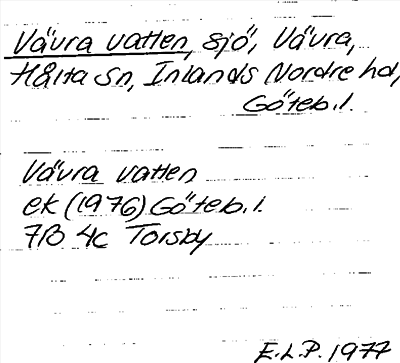 Vävra vatten, sjö, Vävra,
Hålta sn, Inlands Nordre hd,
Göteb.l.
Vävra vatten
ek (1976) Göteb.l.
7B 4c Torsby
E.L.P. 1977